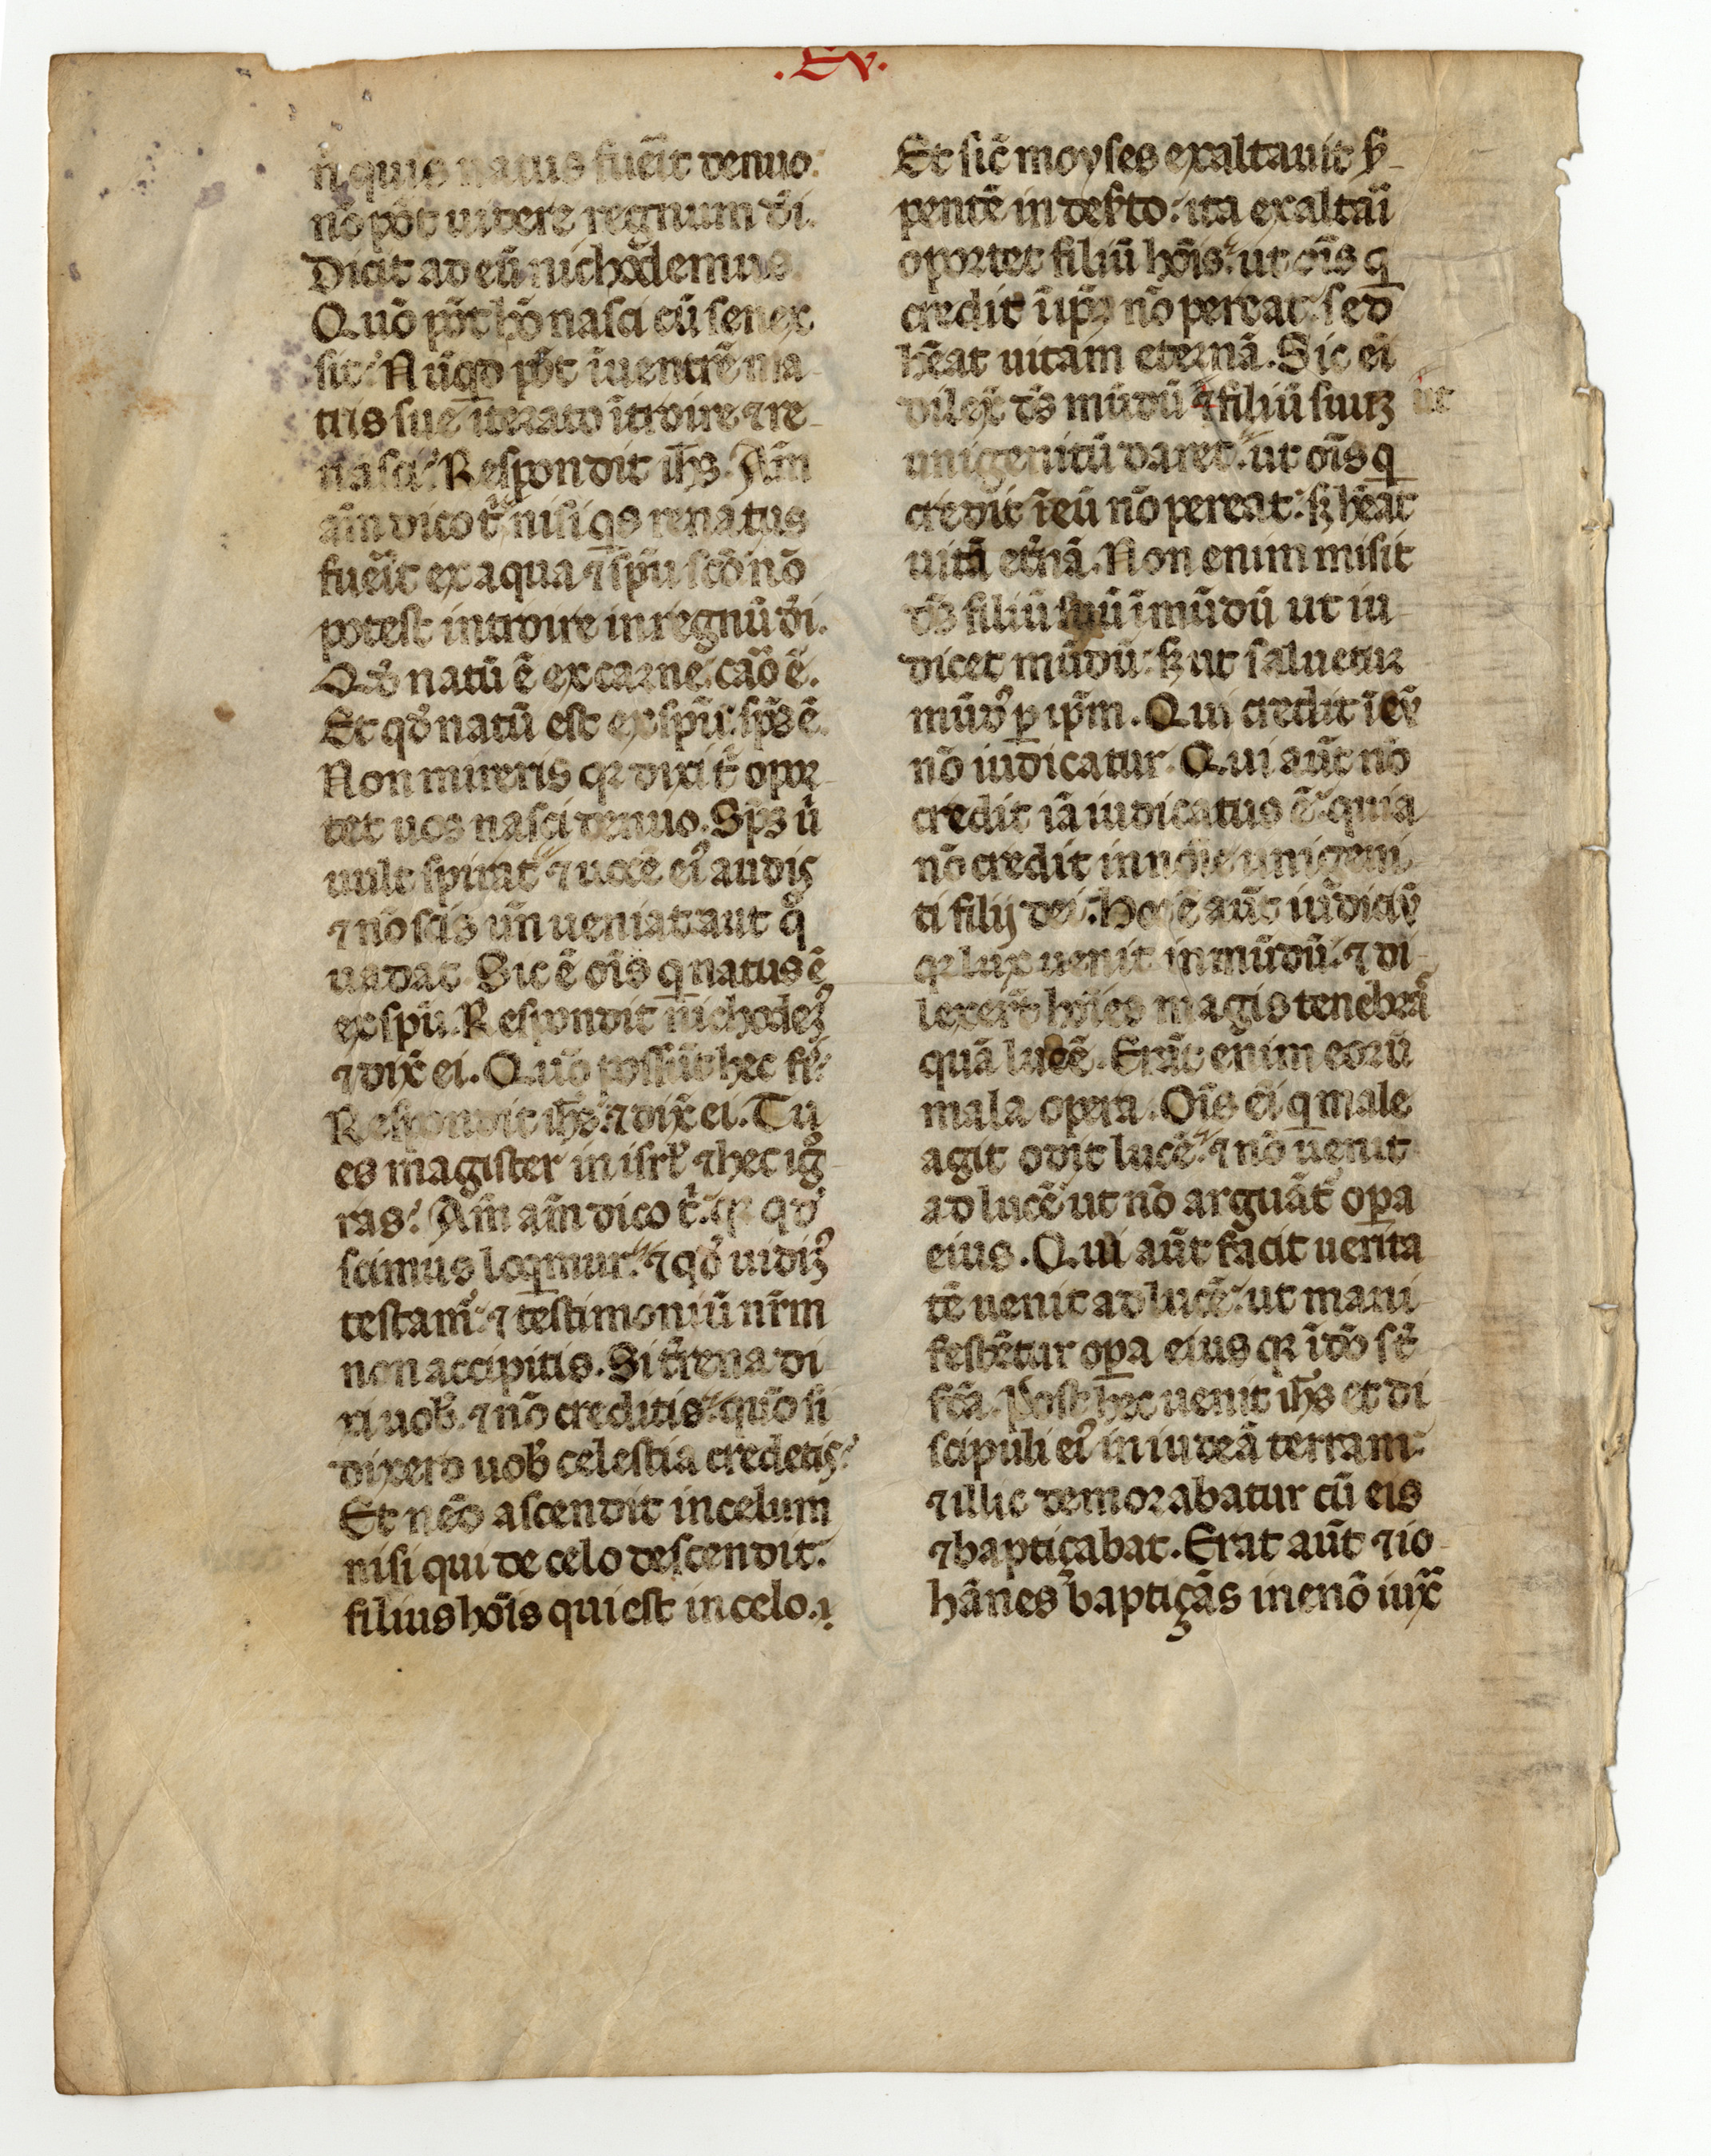 .Ev.
n̄ quis natus fuẽit denuo:
nõ põt uidere regnum dĩ.
Dicit ad eũ nichodemus.
Quõ põt hõ nasci cũ senex
sit? Nũqd põt ĩuentrẽ ma
tris sue iterato ĩtroire ⁊ re
nasci? Respondit ihs̃. Am̃
am̃ dico t̃ nisi qs renatus
fuẽit ex aqua ⁊ spũ scõ nõ
potest introire in regnũ dĩ.
Qđ natũ ẽ ex carne: caõ ẽ.
Et qđ natũ est ex spũ: sps̃ ẽ.
Non mireris qꝛ dixi t̃ opor
tet uos nasci denuo. Sps̃ ũ
uult spirat ⁊ uocẽ eiꝰ audiſ
⁊ nõ scis uñ ueniat aut q̃
uadat. Sic ẽ oĩs q natus ẽ
ex spũ. Respondit nichodeꝫ
⁊ dix̃ ei. Quõ possũt hec fi̾?
Respondit ihs̃ ⁊ dix̃ ei. Tu
es magister in isrł ⁊ hec ig̃
ras? Am̃ am̃ dico t̃. qꝛ qđ
scimus loqmur. ⁊ qđ uidiꝫ
testamꝰ. ⁊ testimoniũ nr̃m
non accipitis. Si t̃rena di
xi uob̃. ⁊ nõ creditis. quõ si
dixero uob̃ celestia credetiſ?
Et nẽo ascendit in celum
nisi qui de celo descendit.
filius hõis qui est in celo.
Et sic̃ moyses exaltauit s̃
pentẽ in deẜto: ita exaltaĩ
oportet filiũ hõis. ut oĩs q
credit ĩ ip̃ꝫ nõ pereat: sed
hẽat uitam eternã. Sic eĩ
dilex̃ ds̃ mũdũ filiũ suuꝫ ut
unigenitũ daret. ut oĩs q
credit ĩ eũ nõ pereat: sꝫ hẽat
uitã etñã. Non enim misit
ds̃ filiũ suũ ĩ mũdũ ut iu
dicet mũdũ: sꝫ ut saluetur
mũdꝰ ꝑ ip̃m. Qui credit ĩ eũ
nõ iudicatur. Qui aũt nõ
credit iã iudicatus ẽ. quia
nõ credit in noĩe unigeni
ti filij dei. Hoc ẽ aũt iudiciũ
qꝛ lux uenit in mũdũ. ⁊ di
lexer̃t hoĩes magis tenebrã
quã lucẽ. Erãt enim eorũ
mala opera. Oĩs eĩ q male
agit odit lucẽ. ⁊ nõ uenit
ad lucẽ ut nõ arguãt̃ oꝑa
eius. Qui aũt facit uerita
tẽ uenit ad lucẽ. ut mani
festẽtur oꝑa eius qꝛ ĩ dõ st̃
fc̃a. Post hec uenit ihs̃ et di
scipuli eiꝰ in iudeã terram:
⁊ illic demorabatur cũ eis
⁊ baptiçabat. Erat aũt ⁊ io
hãnes baptiçãs in enõ iux̃